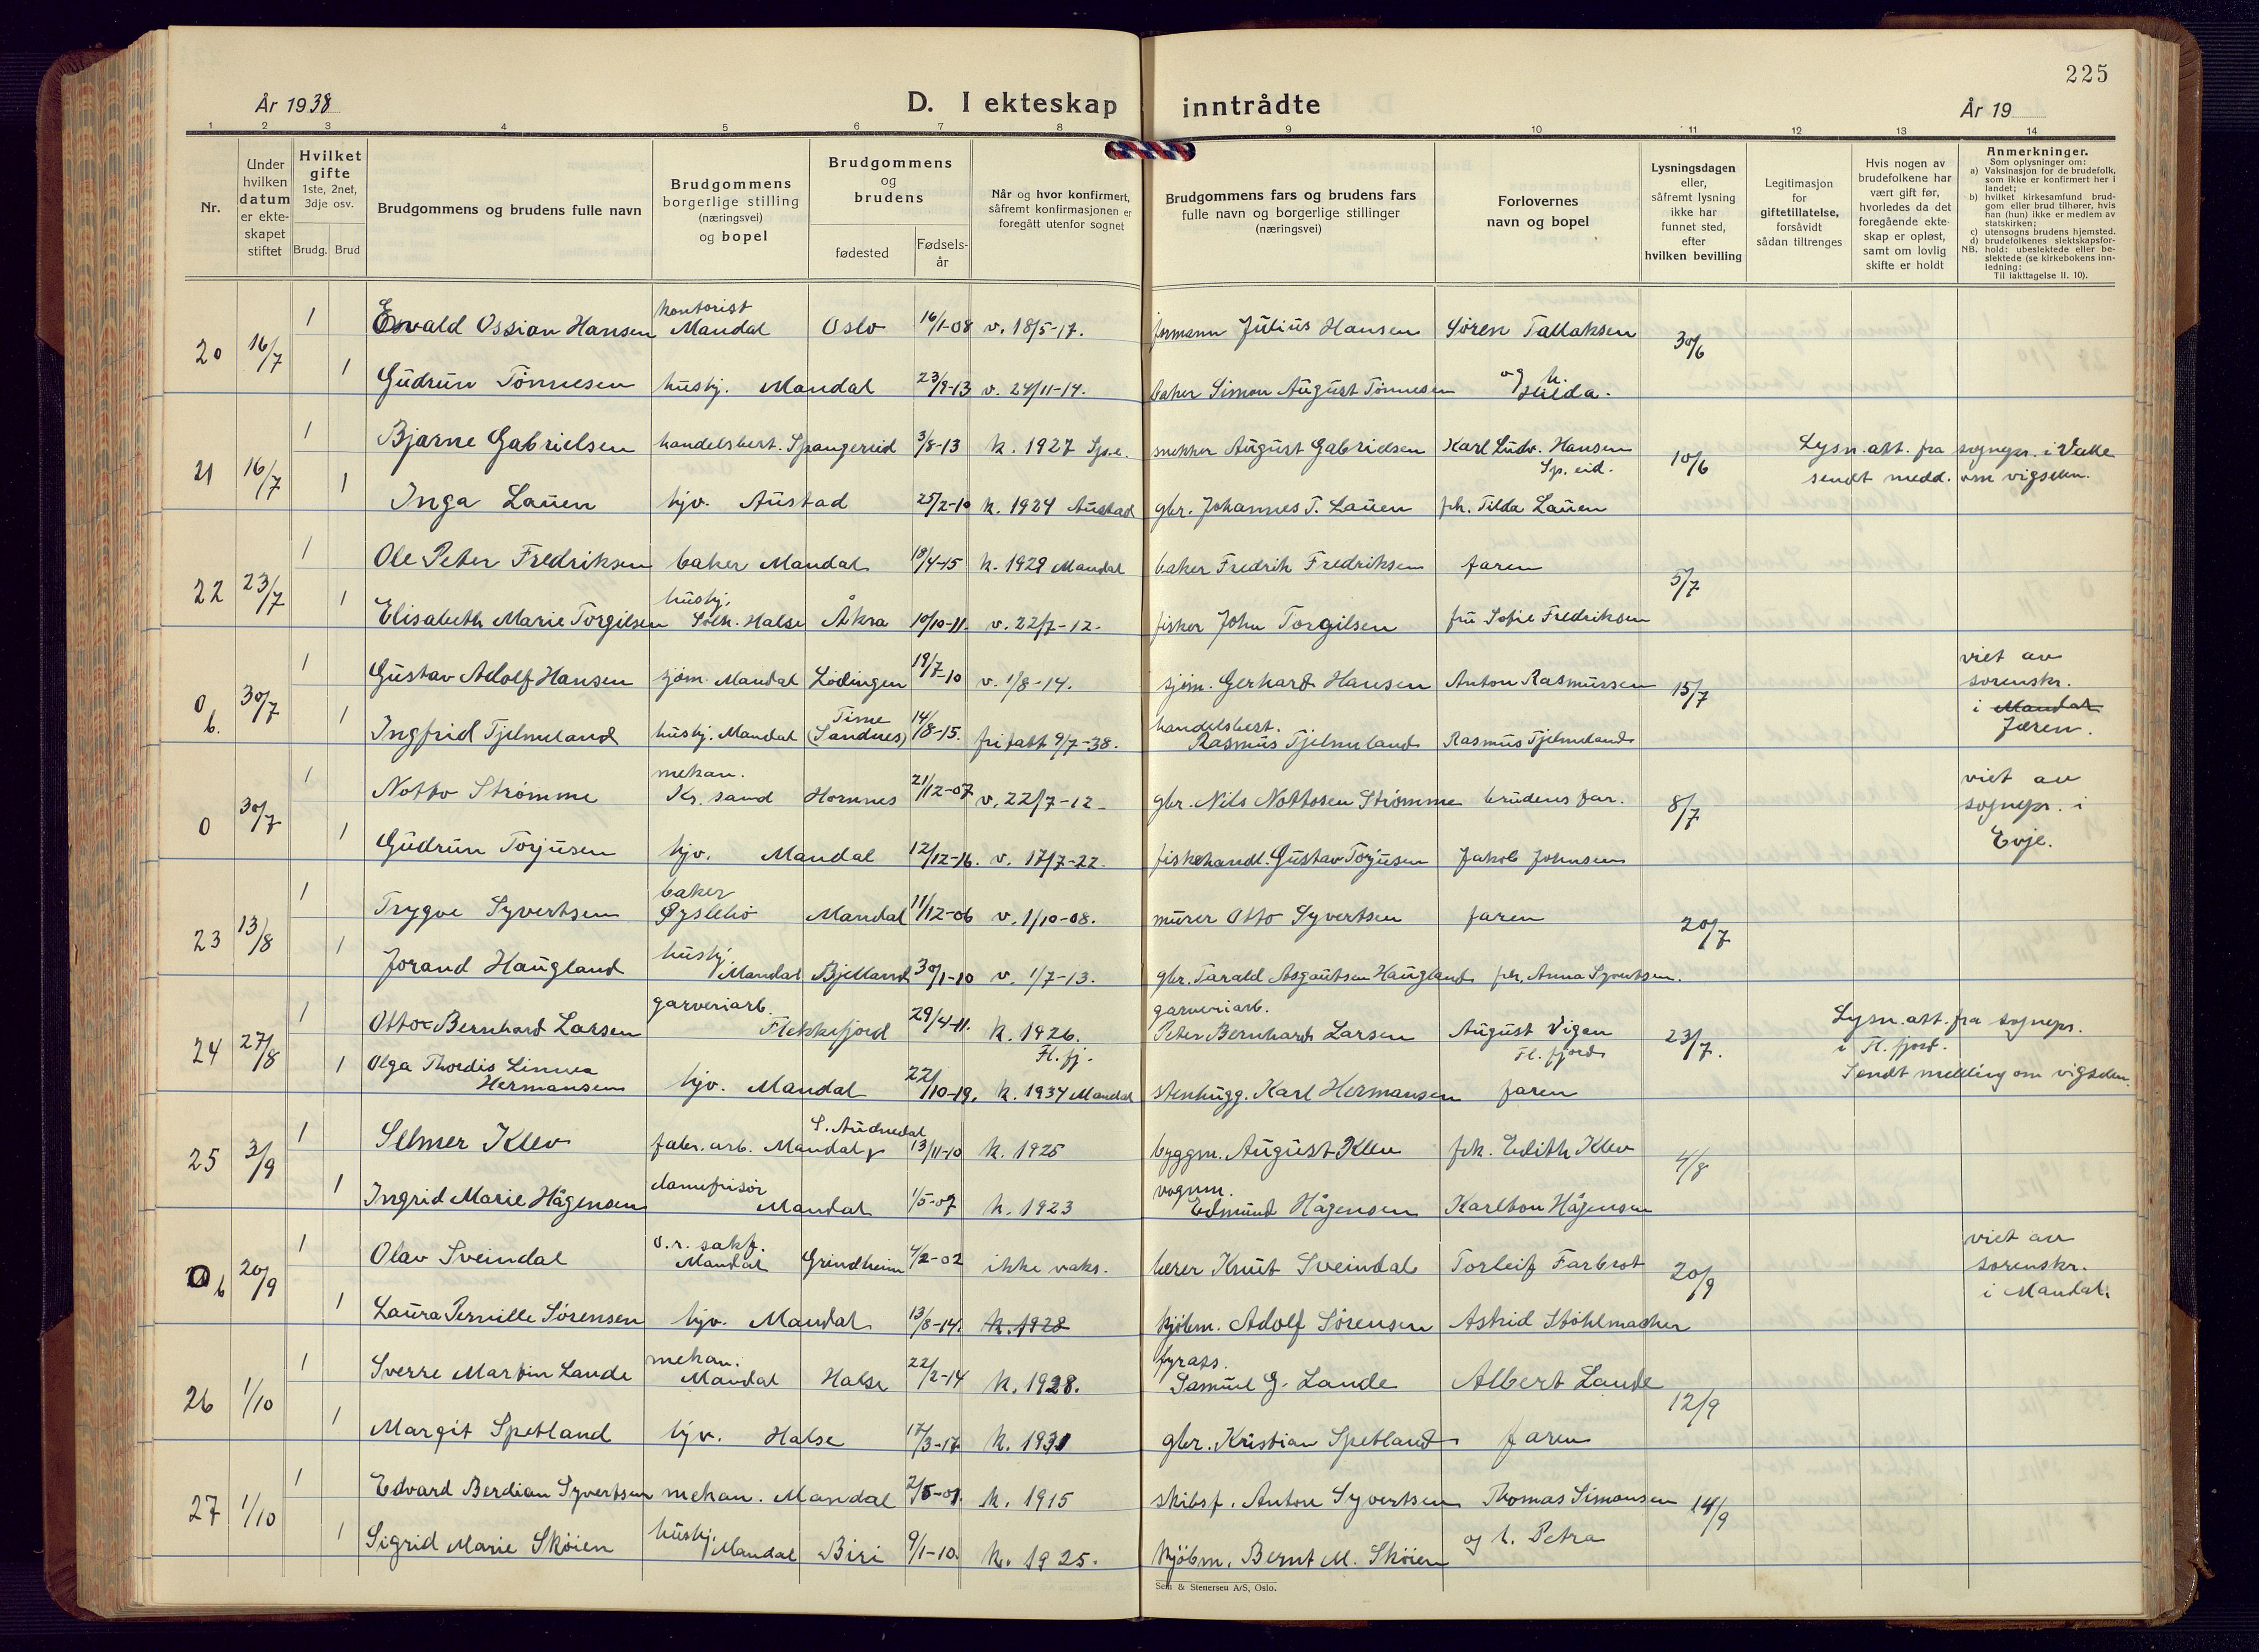 225
År 1938
D. I ekteskap inntrådte
År 19
1 2 3 4 5 6 7 8 9 10 11 12 13 14
Nr.
Under hvilken datum er ekteskapet stiftet
Hvilket gifte 1ste, 2net, 3dje osv.
Brudg. Brud
Brudgommens og brudens fulle navn
Brudgommens borgerlige stilling (næringsvei) og bopel
Brudgommens og brudens
fødested
Fødselsår
Når og hvor konfirmert, såfremt konfirmasjonen er foregått utenfor sognet
Brudgommens fars og brudens fars fulle navn og borgerlige stillinger (næringsvei)
Forlovernes navn og bopel
Lysningsdagen eller, såfremt lysning ikke har funnet sted, efter hvilken bevilling
Legitimasjon for giftetillatelse, forsåvidt sådan tiltrenges
Hvis nogen av brudefolkene har vært gift før, hvorledes da det foregående ekteskap er opløst, samt om lovlig skifte er holdt
Anmerkninger.
Som oplysninger om:
a) Vaksinasjon for de brudefolk, som ikke er konfirmert her i landet;
b) hvilket kirkesamfund brudgom eller brud tilhører, hvis han (hun) ikke er medlem av statskirken;
c) utensogns brudens hjemsted.
d) brudefolkenes slektskapsforhold: ubeslektede eller beslektede (se kirkebokens innledning:
NB. Til iakttagelse II. 10).
20 16/7 1 Osvald Ossian Hansen kontorist Mandal Oslo 16/1-08 v. 18/5-17. formann Julius Hansen Søren Tallaksen 30/6
1 Gudrun Tönnesen husbj. Mandal 23/9-13 v. 24/11-14. baker Simon August Tönnesen og h. Hulda.
21 16/7 1 Bjarne Gabrielsen handelsbest. Spangereid 3/8-13 k. 1927 Sp.e. snekker August Gabrielsen Karl Ludv. Hansen Sp. eid. 10/6 Lysn. att. fra sognepr. i Valle sendt medd. om vigselen.
1 Inga Lauen hjv. Austad 25/2-10 k. 1924 Austad gbr. Johannes T. Lauen frk. Tilda Lauen
22 23/7 1 Ole Peter Fredriksen baker Mandal 18/4-15 k. 1929 Mandal baker Fredrik Fredriksen faren 5/7
1 Elisabeth Marie Torgilsen husbj. Halse Åkra 10/10-11. v. 22/7-12. fisker John Torgilsen fru Sofie Fredriksen
0 b. 30/7 1 Gustav Adolf Hansen sjøm. Mandal Lödingen 19/7-10 v. 1/8-14. sjøm. Gerhard Hansen Anton Rasmussen 15/7 viet av sorenskr. i Mandal Jæren.
1 Ingfrid Tjelmeland husbj. Mandal Time (Sandnes) 14/8-15. fritatt 9/7-38. handelsbest. Rasmus Tjelmeland Rasmus Tjelmeland
0 30/7 1 Notto Strømme mekan. Kr. sand Hornnes 21/12-07 v. 22/7-12- gbr. Nils Nottosen Strømme brudens far. 8/7 viet av sognepr. i Evje.
1 Gudrun Torjusen hjv. Mandal 12/12-16. v. 17/7-22. fiskehandl. Gustav Torjusen Jakob Johnsen
23 13/8 1 Trygve Syvertsen baker Øyslebö Mandal 11/12-06 v. 1/10-08. murer Otto Syvertsen faren 20/7
1 Jorand Haugland husbj. Mandal Bjelland 30/1-10 v. 1/7-13. gbr. Tarald Asgautsen Haugland frk. Anna Syvertsen.
24 27/8 1 Otto Bernhard Larsen garveriarb. Flekkefjord 29/4-11. k. 1926. Fl. fj. garveriarb. Peter Bernhard Larsen August Vigan Fl. fjord 23/7. Lysn. att. fra sognepr. i Fl. fjord. Sendt melding om vigselen.
1 Olga Thordis Linnea Hermansen hjv. Mandal 22/10-19. k. 1934 Mandal stenhugg. Karl Hermansen faren
25 3/9 1 Selmer Klev fabr. arb. Mandal S. Audnedal 13/11-10 k. 1925 byggm. August Klev frk. Edith Klev 4/8
1 Ingrid Marie Hågensen damefrisör Mandal 1/5-07 k. 1923 vognm. Edmund Hågensen Karlton Hågensen
0 b 20/9 1 Olav Sveindal o.r. sakf. Mandal Grindheim 4/2-02 ikke vaks. lærer Knut Sveindal Torleif Farbrot 20/9 viet av sorenskr. i Mandal.
1 Laura Pernille Sörensen hjv. Mandal 13/8-14. k. 1928 kjöbm. Adolf Sörensen Astrid Stöhlmacher
26 1/10 1 Sverre Martin Lande mekan. Mandal Halse 22/2-14 k. 1928. fyrass. Samuel G. Lande Albert Lande 12/9
1 Margit Spetland hjv. Halse 17/3-17 k. 1931 gbr. Kristian Spetland faren
27 1/10 1 Edvard Berdian Syvertsen mekan. Mandal 2/5-01. k. 1915 skibsf. Anton Syvertsen Thomas Simonsen og h. Petra 14/9
1 Sigrid Marie Sköien husbj. Mandal Biri 9/1-10. k. 1925. kjöbm. Bernt M. Sköien
Sem & Stenersen A/S, Oslo.